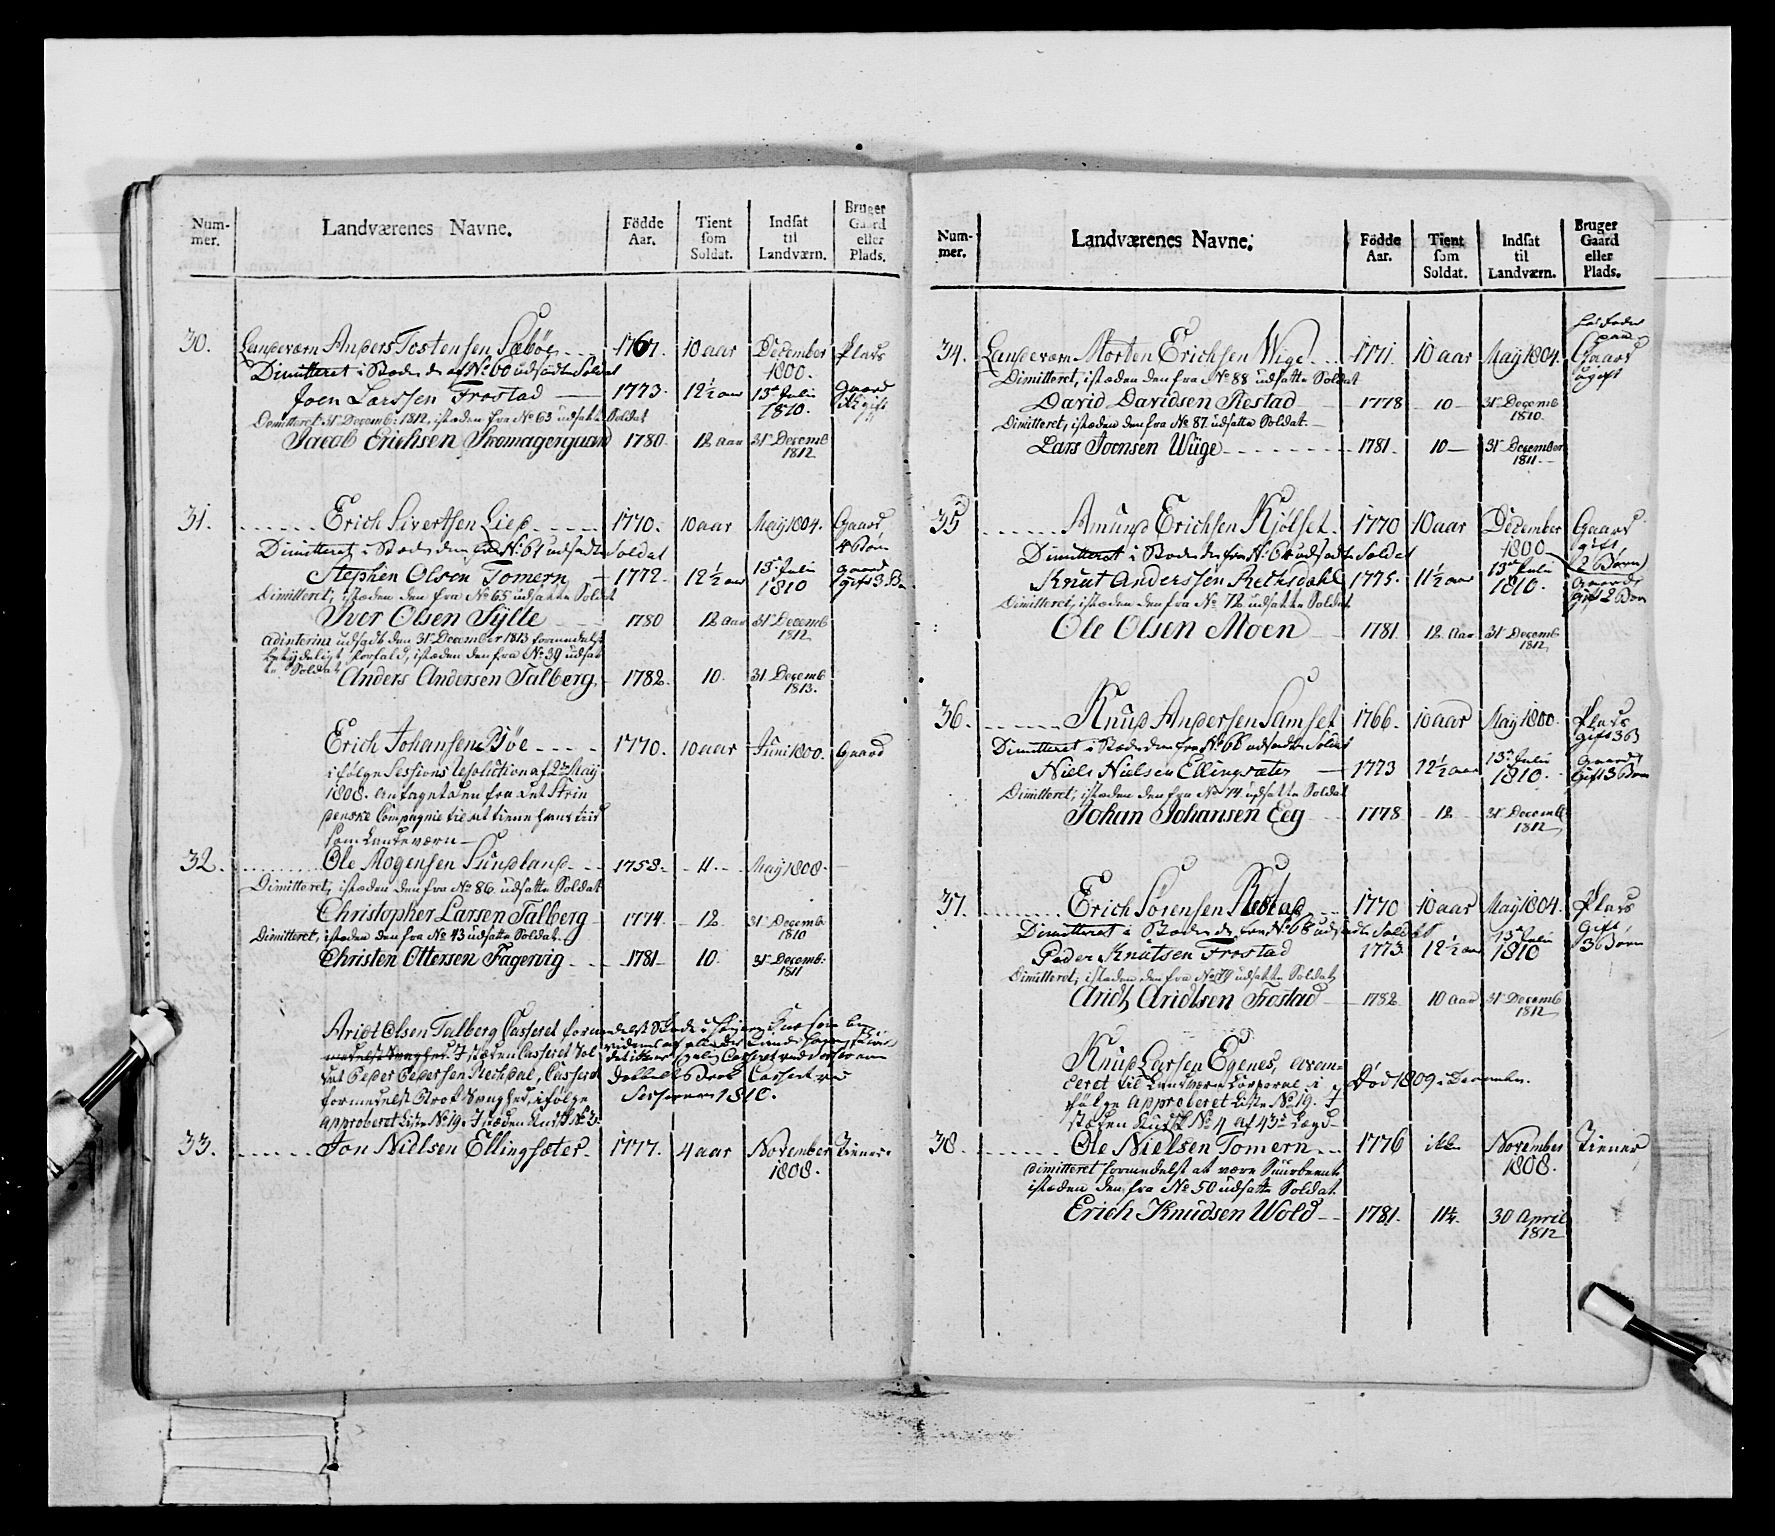 Num-
mer.
Landværenes Navne.
Födde
Aar.
Tient
som
Soldat.
Indsat
til
Landværn.
Bruger
Gaard
eller
Plads.
30. Landeværn Anders Tostensen Sæböe 1767. 10 aar December 1800. Plads
Dimitteret i Stæde den af No 60 udsadte Soldat
Joen Larssen Frostad 1773. 12½ aar 13de Julii 1810. Gaard
Demitteret 31 Decemb: 1812, istæden fra No 63 udsatte Soldat
Jacob Erichsen Skomagergaard 1780. 12 aar 31 Decemb 1812.
31. Erich Sivertsen Lied 1770. 10 aar May 1804. Gaard 4 Börn
Dimitteret i Stæde den fra No 61 udsadte Soldat
Stephen Olsen Tomern 1772. 12½ aar 13de Julii 1810 Gaard gift 3 Bn
Dimitteret, istæden den fra No 65 udsatte Soldat
Iver Olsen Sylte 1780 12 aar 31 Decemb 1812.
adinterim udsadt den 31 December 1813 formedelst
betydeligt forfald, istæden den fra No 39 udsat-
te Soldat Anders Andersen Talberg 1782. 10. 31 Decemb 1813.
Erich Johansen Böe 1770. 10 aar Juni 1800. Gaard
ifölge Sessions Resolution af 2den May
1808. antaget den fra det
Compagnie til at tiene hans tiid
som Landeværn
32. Ole Mogensen Sundland 1758. 11. May 1808.
Dimitteret, istæden den fra No 86 udsatte Soldat
Christopher Larsen Talberg 1774. 12. 31 Decemb 1810
Dimitteret, istæden den fra No 43 udsatte Soldat.
Christen Ottersen Fagervig 1781. 10. 31 Decemb. 1811
Aridt Olsen Talberg Casseret formedelst Skade
Svaghed. I stæden Casseret Sol-
dat Peder Pedersen Rechdal, Casseret
formedelst Brok Svaghed, ifölge
Approberet Liste No 19. I stæden
Sessionen 1810.
33. Jon Nielsen Ellingsæter 1777. 4 aar November 1808. Tiener
Num-
mer.
Landværenes Navne.
Födde
Aar.
Tient
som
Soldat.
Indsat
til
Landværn.
Bruger
Gaard
eller
Plads.
34. Landeværn Morten Erichsen Wige 1771. 10 aar May 1804. Gaard ugift
Dimitteret, istæden den fra No 88 udsatte Soldat
David Davidsen Restad 1778 10 31 Decemb 1810.
Dimitteret, istæden den fra No 87 udsatte Soldat.
Lars Joensen Wüge 1781. 10 31 December 1811.
35 Amund Erichsen Kjölset 1770 10 aar December 1800 Gaard gift (2 Börn)
Dimitteret i Stæde den fra No 64 udsadte Soldat
Knut Anderssen Rethsdahl 1775. 11½ aar 13de Julii 1810. Gaard gift 2 Börn
Dimitteret, istæden den fra No 72 udsatte Soldat
Ole Olsen Moen 1781. 12 aar 31 Decemb 1812.
36. Knud Andersen Samset 1766. 10 aar May 1800. Plads gift 3 B
Dimitteret i Stæde den fra No 66 udsadte Soldat
Niels Nielsen Ellingsæter 1773 12½ aar 13de Julii 1810. Gaard gift 3 Börn
Dimitteret, istæden den fra No 74 udsatte Soldat
Johan Johansen Eeg 1778 12 31 Decemb 1812
37. Erich Sörensen Restad 1770 10 aar May 1804. Plads Gift 3 Börn
Dimitteret i Stæde den fra No 68 udsadte Soldat
Peder Knutsen Frostad 1773. 12½ aar 13de Julii 1810
Dimitteret, istæden den fra No 79 udsatte Soldat
Aridt Aridtsen Frostad 1782 10 aar 31 Decemb 1812
Knud Larsen Egenes, avan-
ceret til Landværn Corporal i Död 1809 i December.
fölge Approberet Liste No 19. I
stæden No 4 af 43de Lægd
38. Ole Nielsen Tomern 1776 ikke November 1808. Tiener
dimitteret formedelst at være
istæden den fra No 50 udsatte Soldat
Erich Knudsen Wold 1781. 11¼. 30 April 1812